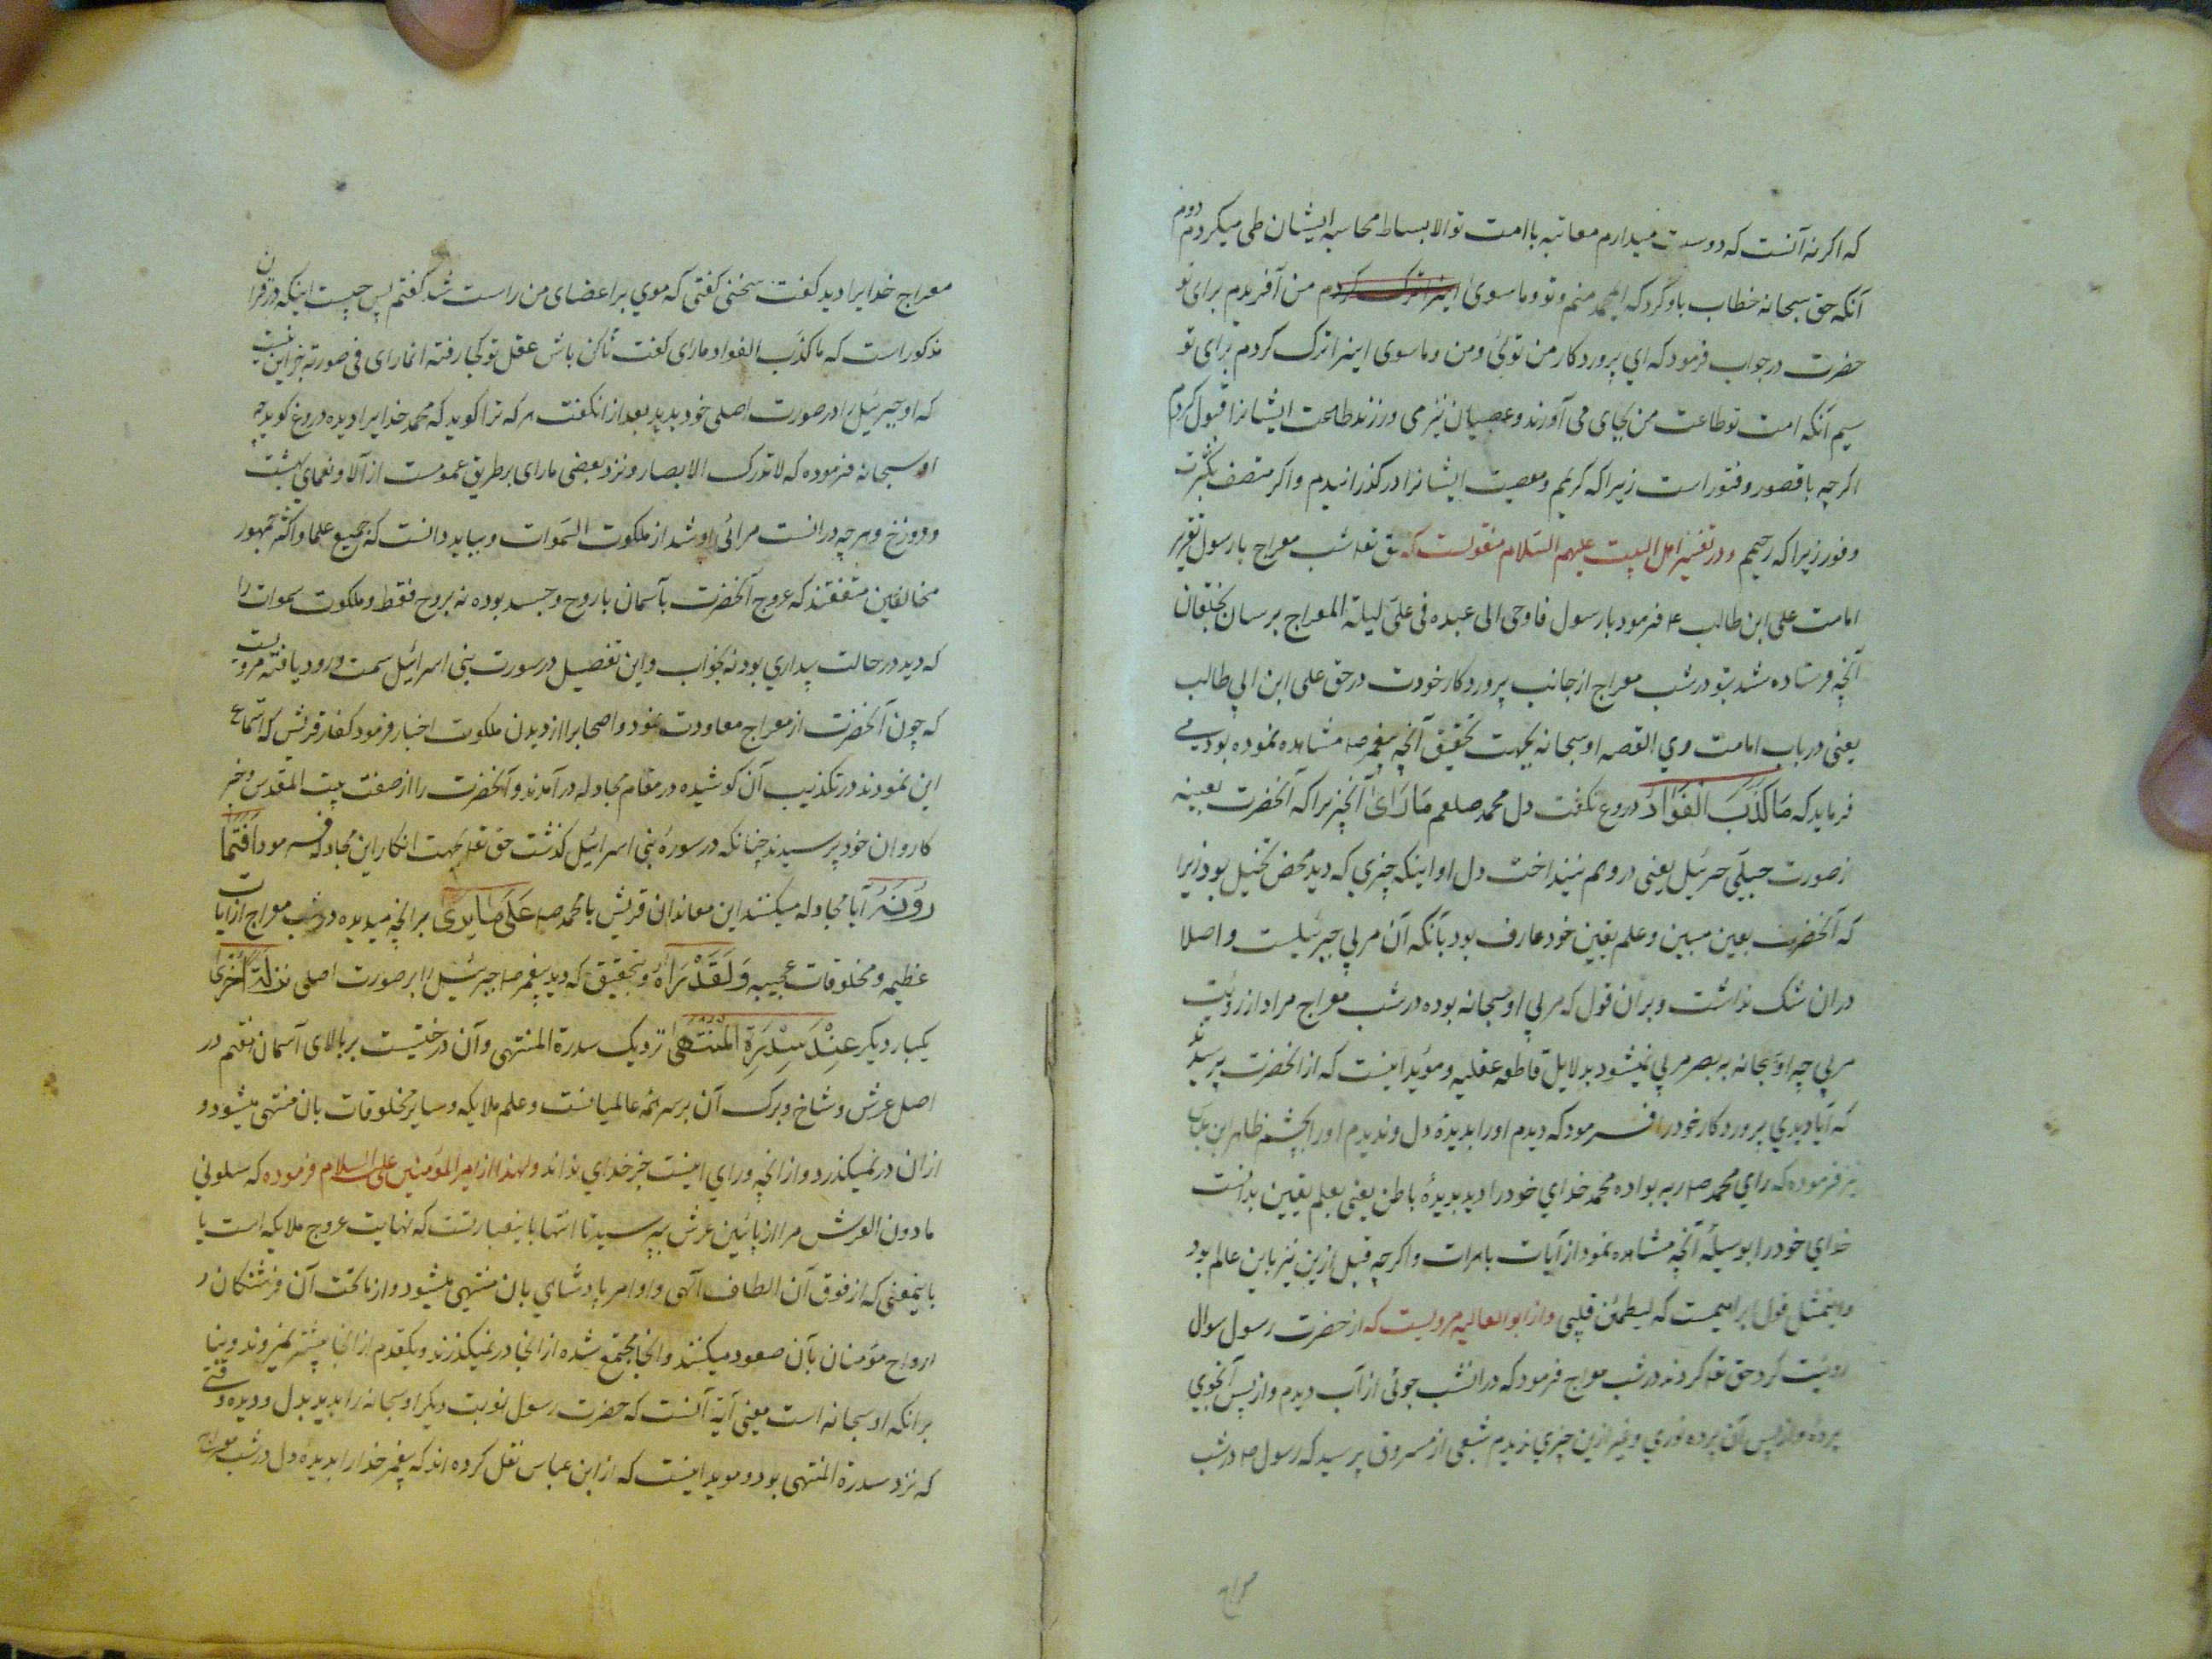 که اکر نه آنست که دوست میدارم معاتبه با امت تو الا بساط محاسبه ایشان طی میکردم دوم
آنکه حق سبحانه خطاب باو کرد که ای محمد منم و تو و ما سوی اینرا ترک کردم من آفریدم برای تو
حضرت در جواب فرمود که ای پروردکار من توئی و من و ما سوی اینرا ترک کردم برای تو
سیم آنکه امت تو طاعت من بجای می آورند و عصیان نیز می ورزند طاعت ایشانرا قبول کردم
اکر چه با قصور و فتور است زیرا که کریم و معصیت ایشانرا در کذرانیدم و اکر متصف بکثرت
وفور زیرا که رحیم و در تفسیر اهل البیت علیهم السلام منقولست که حق تعه شب معراج با رسول تقریر
امامت علی ابن طالب ع فرمود یا رسول فاوحی الی عبده فی علی لیلة المعراج برسان بخلقان
آنچه فرستاده شد بتو در شب معراج از جانب پروردکار خودت در حق علی ابن ابی طالب
یعنی در باب امامت وی القصه او سبحانه بجهت تحقیق آنچه پیغمبر صه مشاهده نموده بود می
فرماید که مَا کَذَبَ الْفُؤَادُ دروغ نکفت دل محمد صلعم مَا رَایٰ آنچیزیرا که آنحضرت بعینه
از صورت جبلّی جبرئیل یعنی در وهم نینداخت دل او اینکه چیزی که دید محض تخیل بود زیرا
که آنحضرت بعین مبین و علم یقین خود عارف بود بآنکه آن مرئی جبرئیلست و اصلا
دران شک نداشت و بران قول که مرئی او سبحانه بوده در شب معراج مراد از رؤیت
مرئی چه او سبحانه به بصر مرئی نمیشود بدلایل قاطعه عقلیه و مؤید اینست که از انحضرت پرسیدند
که آیا دیدی پروردکار خود را فرمود که دیدم او را بدیدهٔ دل و ندیدم او را بچشم ظاهر ابن عباس
نیز فرموده که رای محمد صه ربه بفواده محمد خدای خود را دید بدیدهٔ باطن یعنی بعلم یقین بدانست
خدای خود را بوسیلهٔ آنچه مشاهده نمود از آیات باهرات و اکر چه قبل ازین نیز باین عالم بود
و اینمثل قول ابراهیمست که لیطمئن قلبی و از ابو العالیه مرویست که از حضرت رسول سوال
رویت کرد حق تعه کردند در شب معراج فرمود که در انشب جوئی از آب دیدم و از پس آنجوی
پردهٔ و از پس آن پرده نوری و غیر ازین چیزی ندیدم شعبی از مسروق پرسید که رسول صه در شب
معراج
معراج خدایرا دید کفت سخنی کفتی که موی بر اعضای من راست شد کفتم پس چیست اینکه در قران
مذکور است که ما کذب الفواد ما رای کفت ساکن باش عقل تو کجا رفته انما رای فی صورته جز این نیست
که او جبرئیل را در صورت اصلی خود بدید بعد ازان کفت هر که ترا کوید که محمد خدایرا دیده دروغ کوید چه
او سبحانه فرموده که لا تدرک الابصار و نزد بعضی ما رای بر طریق عمومست از آلا و نعمای بهشت
و دوزخ و هر چه درانست مرائی او شد از ملکوت السموات و بباید دانست که جمیع علما و اکثر جمهور
مخالفین متفقند که عروج آنحضرت بآسمان با روح و جسد بوده نه بروح فقط و ملکوت سموات را
که دید در حالت بیداری بود نه بخواب و این تفصیل در سورت بنی اسرائیل سمت ورود یافته مرویست
که چون آنحضرت از معراج معاودت نمود و اصحابرا از دیدن ملکوت اخبار فرمود کفار قریش که استماع
این نمودند در تکذیب آن کوشیده در مقام مجادله در آمدند و آنحضرت را از صفت بیت المقدس و خبر
کاروان خود پرسیدند چنانکه در سورهٔ بنی اسرائیل کذشت حق تعه بجهت انکار این مجادله فرمود اَفَتُمَا
رُونَهُ آیا مجادله میکنند این معاندان قریش با محمد صه عَلیٰ مَا یَریٰ بر انچه میدیده در شب معراج از ایات
عظیمه و مخلوقات عجیبه وَلَقَدْ رَاٰهُ و بتحقیق که دید پیغمبر صه جبرئیل را بر صورت اصلی نَزْلَةً اُخْریٰ
یکبار دیکر عِنْدَ سِدْرَةِ الْمُنْتَهیٰ نزدیک سدرة المنتهی و آن درختیست بر بالای آسمان هفتم در
اصل عرش و شاخ و برک آن بر سر همه عالمیانست و علم ملایکه و سایر مخلوقات بان منتهی میشود و
ازان در نمیکذرد و از انچه ورای اینست جز خدای نداند و لهذا از امیر المؤمنین علی السلام فرموده که سلونی
ما دون العرش مرا از پائین عرش بپرسید تا انتها باینعبارتست که نهایت عروج ملایکه است یا
باینمعنی که از فوق آن الطاف الهی و اوامر پادشاهی بان منتهی میشود و از ما تحت آن فرشتکان و
ارواح مؤمنان بآن صعود میکنند و انجا مجتمع شده از انجا در نمیکذرند و یکقدم از انجا پیشتر نمیروند و بنا
بر انکه او سبحانه است معنی آیة آنست که حضرت رسول نوبت دیکر او سبحانه را بدید بدل و دیده وقتی
که نزد سدرة المنتهی بود و موید اینست که از ابن عباس نقل کرده اند که پیغمبر خدا را بدیدهٔ دل در شب معراج